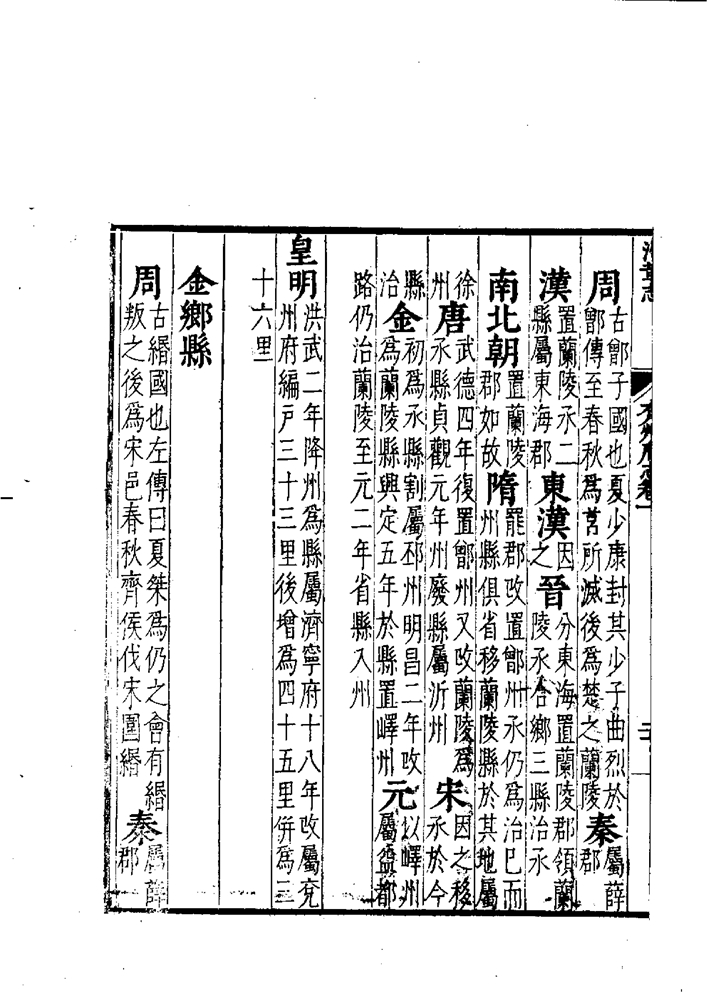 周古鄫子國也夏少康封其少子曲烈於鄫傳至春秋爲莒所滅後爲楚之蘭陵秦屬薛郡
漢置蘭陵承二縣屬東海郡東漢因之晉分東海置蘭陵郡領蘭陵承合鄉三縣治承
南北朝置蘭陵郡如故隋罷郡改置鄫州承仍爲治已而州縣俱省移蘭陵縣於其地屬
徐州唐武德四年復置鄫州又改蘭陵爲承縣貞觀元年州廢縣屬沂州宋因之移承於今
縣治金初爲承縣割屬邳州明昌二年改爲蘭陵縣興定五年於縣置嶧州元以嶧州屬益都
路仍治蘭陵至元二年省縣入州
皇明洪武二年降州爲縣屬濟寧府十八年改屬兗州府編戶三十三里後增爲四十五里併爲三
十六里
金鄉縣
周古緡國也左傳曰夏桀爲仍之會有緡叛之後爲宋邑春秋齊侯伐宋圍緡秦屬薛郡